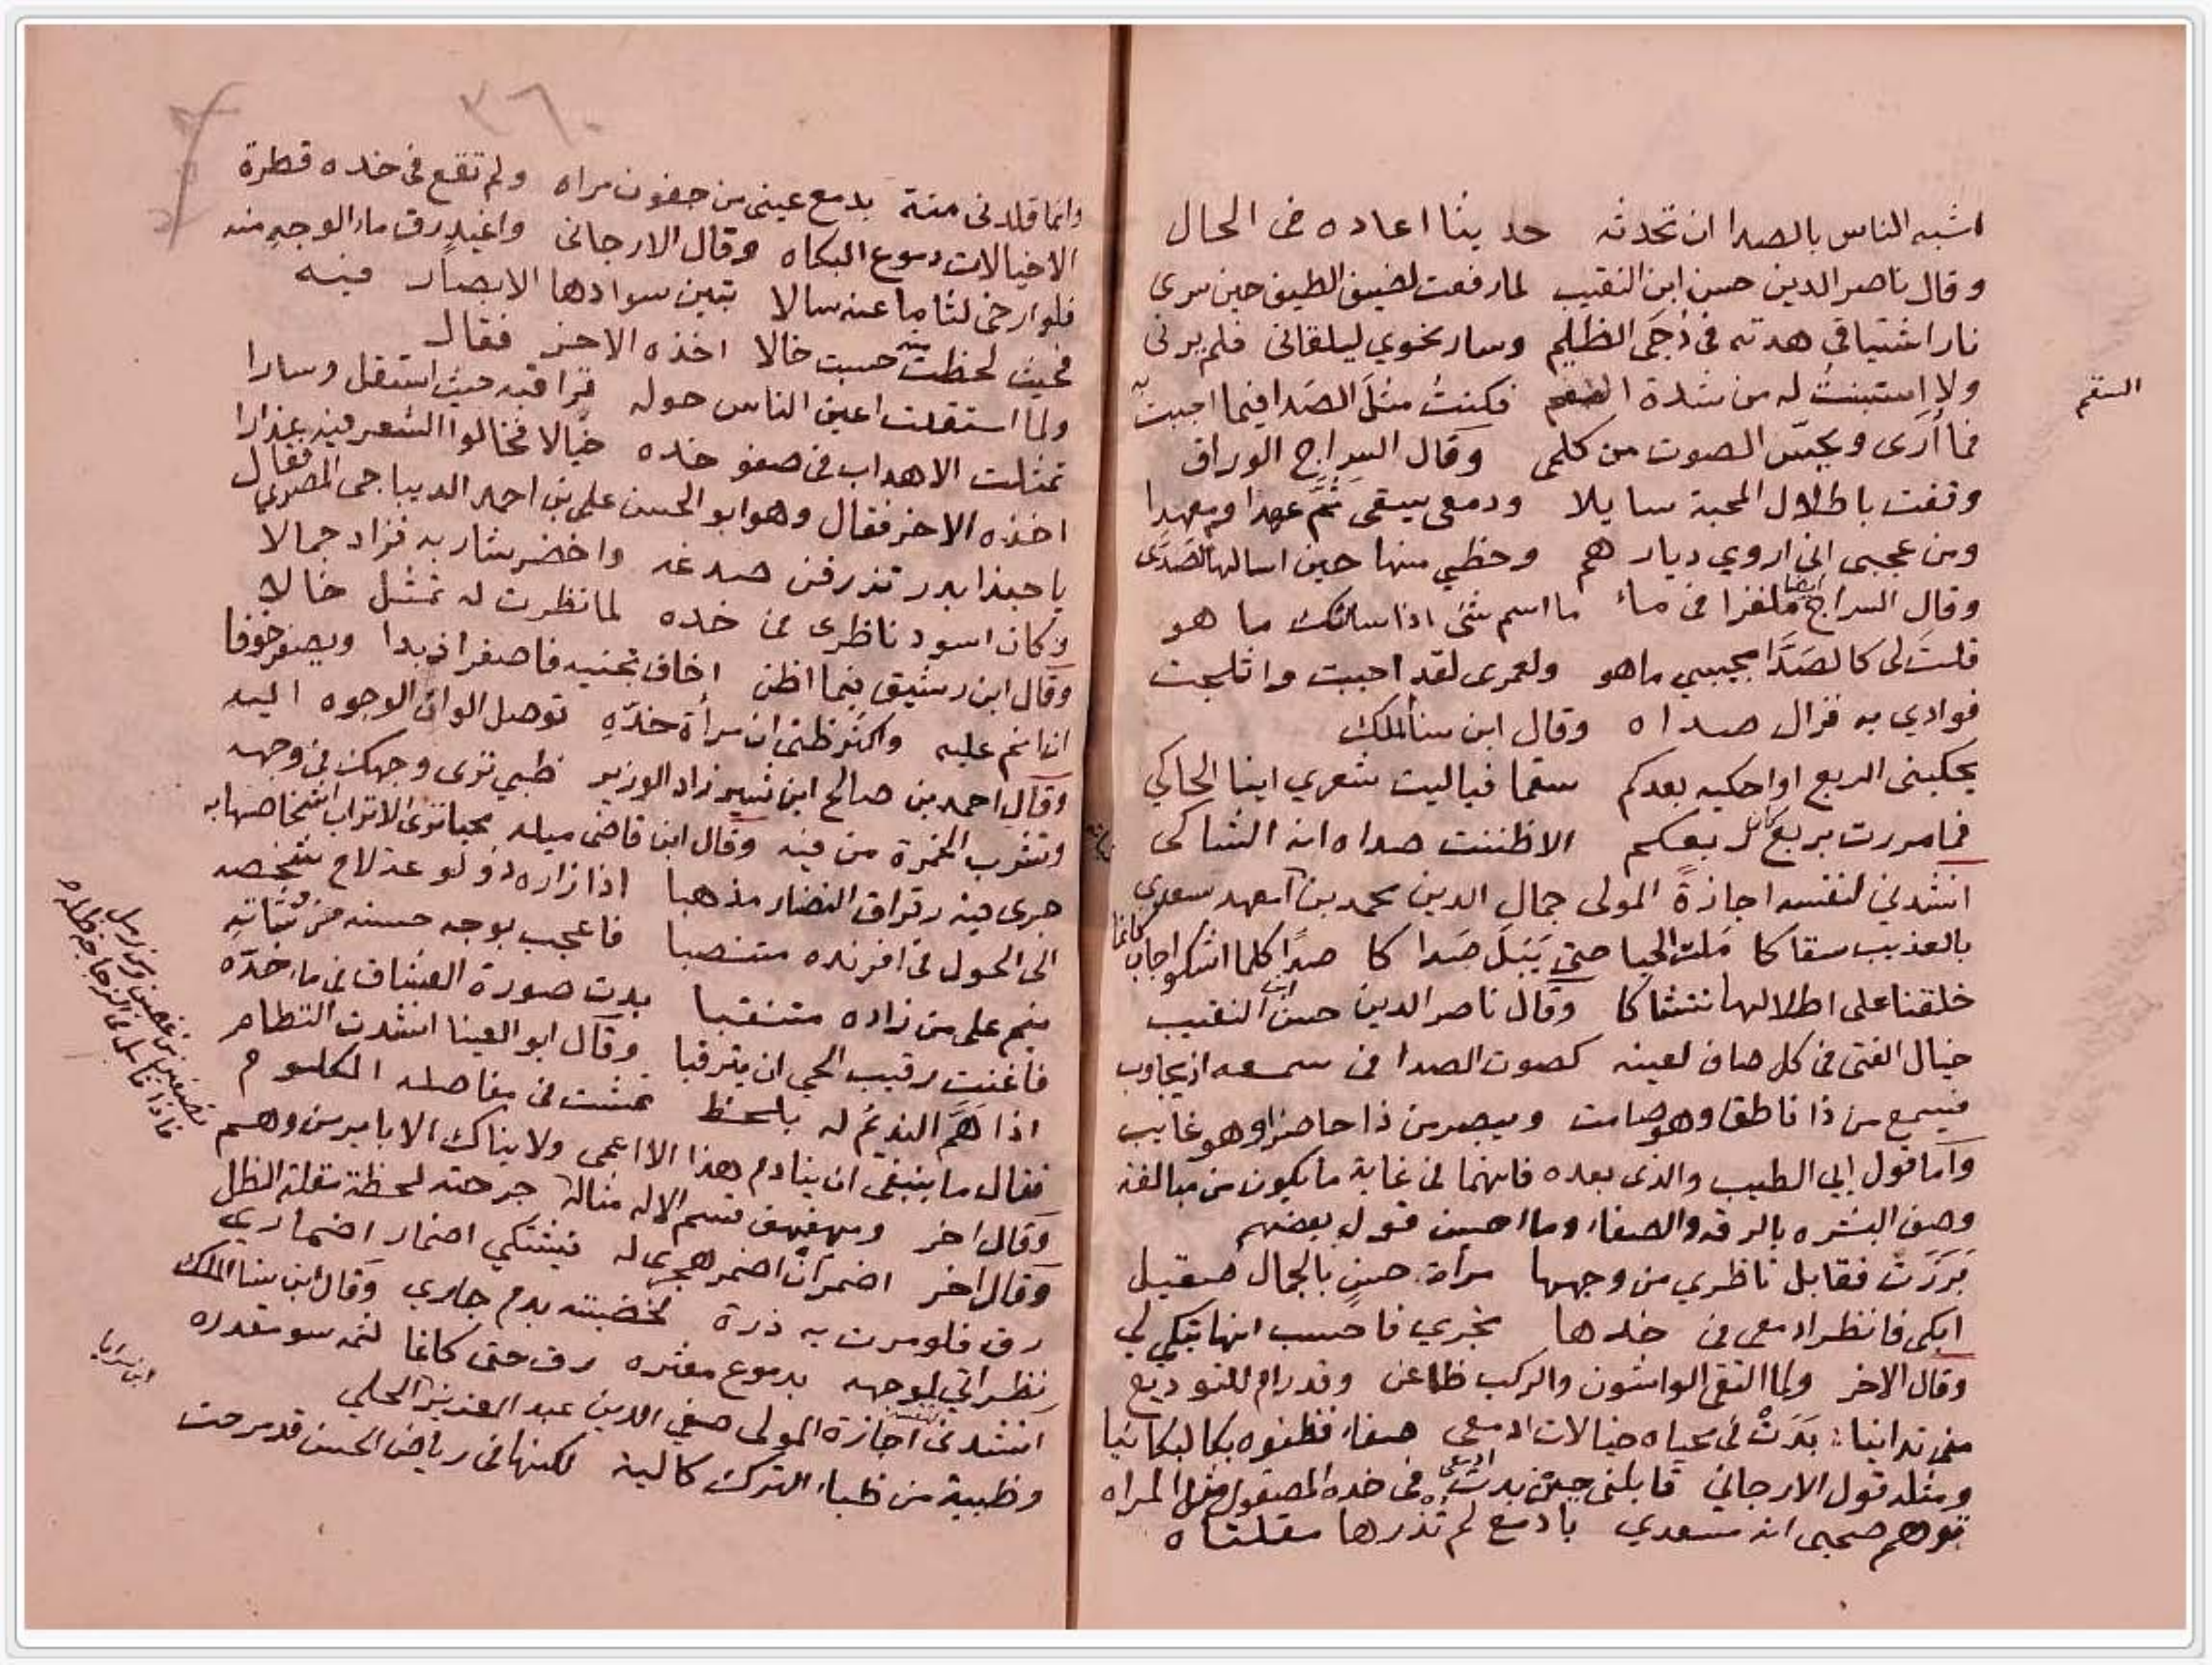 اشبه الناس بالصدا ان تحدثه حديثا اعاده فى الحال
وقال ناصر الدين حسن ابن النقيب لما رفعت لضيف الطيف حين سرى
نار اشتياقى هدته فى دُجَى الظلم وسار نحوي ليلقانى فلم يرنى
ولا استبنتُ له من شدة السقم فكنتُ مثلَ الصَدا فيما اجيبُ به
السقم
فما أُرَى ويحسّ الصوت من كلمى وقال السراج الوراق
وقفت باطلال المحبة سايلا ودمعى يسقى ثَمَّ عهدا ومعهدا
ومن عجبى انى اروي ديارهم وحظي منها حين اسالها الصَدَى
وقال السراج ايضا ملغزا فى ماء ما اسم شئ اذا سالتك ما هو
قلتَ لى كالصَدَا مجيبي ماهو ولعمرى لقد اجبت واثلجت
فوادي به فزال صداه وقال ابن سنا الملك
يحكينى الربع اواحكيه بعدكم سقما فياليت شعري اينا الحاكي
فما مررت بربع كان ربعكم الا ظننت صداه انه الشاكى
انشدنى لنفسه اجازةً المولى جمال الدين محمد بن امعهد سعدى
بالعذيب سقاكا مَلث الحيا حتى يَبَلَ صَدا كا صدًا كلما اشكو اجاب كانما
خلقنا على اطلالها نتشاكا وقال ناصر الدين حسن ابن النقيب
خيال الفتى فى كل صاف لعينه كصوت الصدا فى سمعه اذ يجاوب
فيسمع من ذا ناطقا وهو صامت ويبصر من ذا حاضرا وهو غايب
واما قول ابي الطيب والذى بعده فانهما فى غاية ما يكون من مبالغة
وصف البشره بالرقه والصفاء وما احسن قول بعضهم
بَرَزَت فقابل ناظري من وجهها مرأة حسنٍ بالجمال صقيل
ابكى فانظر ادمعى فى خدها تجري فاحسب انها تبكي لي
وقال الاخر ولما التقى الواشون والركب ظاعن وقد رام للتوديع
منى تدانيا بَدَتْ فى محياه خيالات ادمعى صفاء فظنوه بكا لبكائيا
ومثله قول الارجاني قابلنى حين بدت ادمعى فى خده المصقول مثل المراه
توهم صحبى انه مسعدي بادمع لم تُذرها مقلتاه
٣٦٠
وانما قلدنى منة بدمع عينى من جفون مراه ولم تقع فى خده قطرة
الا خيالات دموع البكاه وقال الارجانى واغيد رق ماء الوجه منه
فلو ارخى لثاما عنه سالا تبين سوادها الابصار فيه
فحيث لحظت منه حسبت خالا اخذه الاخر فقال
ولما استقلت اعين الناس حوله تراقبه حيث استقل وسارا
تمثلت الاهداب فى صفو خده خيالا فخالوا الشعر فيه عذارا
اخذه الاخر فقال وهو ابو الحسن على بن احمد الديباجى المصرى فقال
يا حبذا بدر تزرفن صدغه واخضر شاربه فزاد جمالا
وكان اسود ناظرى فى خده لما نظرت له تمثل خالا
وقال ابن رشيق فيما اظن اخاف تجنيه فاصفر اذ بدا ويصفر خوفا
ان انم عليه واكثر ظنى ان مرأة خدّهِ توصل الوان الوجوه اليه
وقال احمد بن صالح ابن شيرزاد الوزير ظبي ترى وجهك فى وجهه
وتشرب الخمرة من فيه وقال ابن قاضى ميله محيا ترى الاتراب اشخاصها به
جرى فيه رقراق النضار مذهبا اذا زاره ذو لوعة لاح شخصه
الى الحول فى افرنده متنصبا فاعجب بوجه حسنه من وُشَاتهِ
ينم على من زاده متنقبا بدت صورة العشاق فى ماء خدّه
فاغنت رقيب الحي ان يترقبا وقال ابو العينا انشدت النظام
اذا هَمَّ النديمُ له بلحظ تمشت فى مفاصله الكلوم
فقال ما ينبغى ان ينادم هذا الا اعمى ولا يناك الا باير من وهم
وقال اخر ومهفهف قسم الاله مثاله جرحته لحظة مقلة الظل
وقال اخر اضمر ان اضمر هجرى له فيشتكي اضمار اضماري
رق فلو مرت به ذرة لخضبته بدم جارى وقال ابن سنا الملك
نظراتي لوجهه بدموع مغثره رق حتى كانما لثمه سو مقدره
انشدنى لنفسه اجازة المولى صفي الدين عبد العزيز الحلي
وظبية من ظباء الترك كالية لكنها فى رياض الحسن قد سرحت